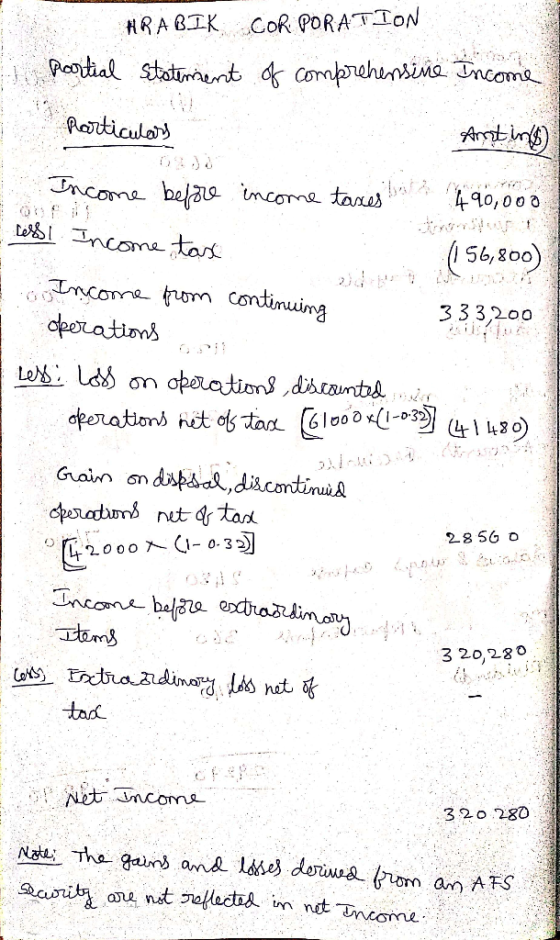 HRABIK CORPORATION
Partial Statement of comprehensive Income
Particulars Amt in($)
Income before income taxes 490,000
Less: Income tax (156,800)
Income from continuing
operations 333,200
Less: Loss on operations, discounted
operations net of tax [61000×(1-0.32)] (41480)
Gain on disposal, discontinued
operations net of tax
[42000 × (1-0.32)] 28560
Income before extraordinary
Items 320,280
Less: Extraordinary loss net of
tax –
Net Income 320280
Note: The gains and losses derived from an AFS
Security are not reflected in net Income.